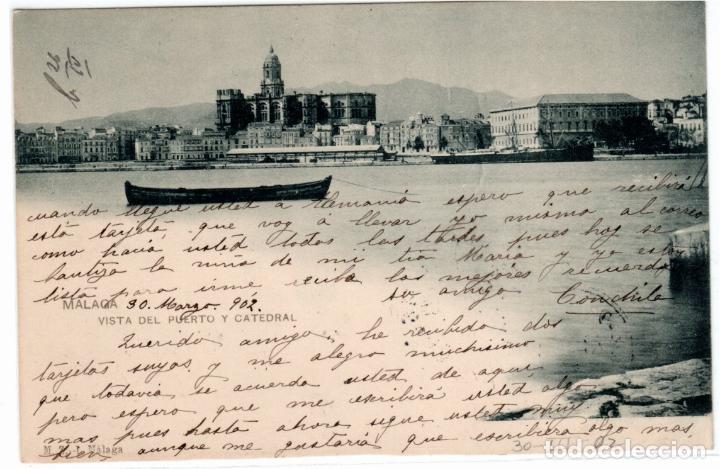 cuando llegue usted á Alemania espero que recibirá
esta tarjeta que voy á llevar yo misma al correo
como hacia usted todas las tardes pues hoy se
bautiza la niña de mi tia Maria y yo estoy
lista para irme reciba los mejores recuerdos
su amiga Conchita
MÁLAGA 30. Marzo. 902.
VISTA DEL PUERTO Y CATEDRAL
Querido amigo, he recibido dos
tarjetas suyas y me alegro muchisimo
que todavia se acuerda usted de aqui
pero espero que me escribirá usted algo
mas pues hasta ahora sigue usted muy
bien aunque me gustaria que escribiera algo mas
Málaga
30 02
todocoleccion.net